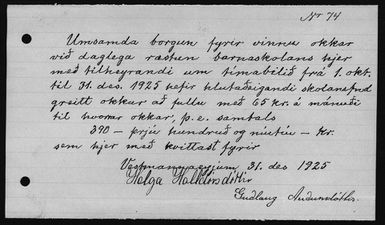 Nr 74
Umsamda borgun fyrir vinnu okkar
við daglega ræstun barnaskólans hjer
með tilheyrandi um tímabilið frá 1. okt.
til 31. des. 1925 hefir hlutaðeigandi skólanefnd
greitt okkur að fullu með 65 kr. á mánuði
til hvorrar okkar, þ. e. samtals
390 – þrjú hundruð og níutíu – kr.
sem hjer með kvittast fyrir
Vestmannaeyjum 31. des 1925
Helga
Guðlaug